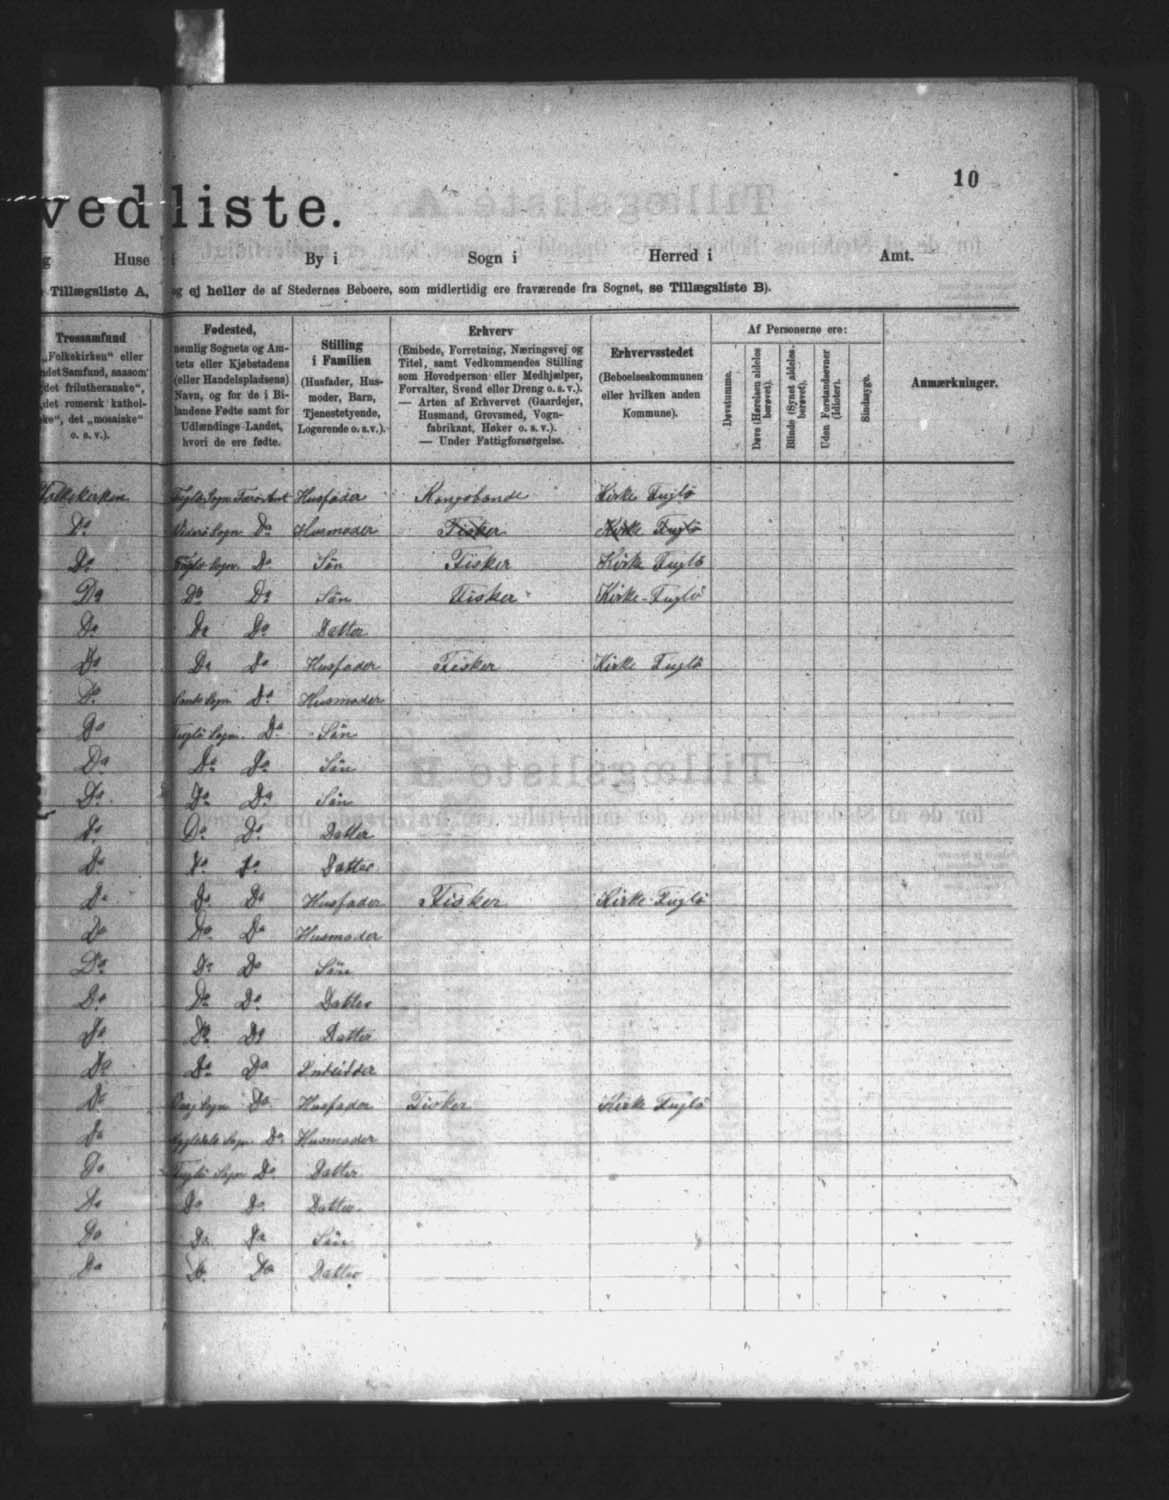 10
vedliste.
g Huse i By i Sogn i Herred i Amt.
Tillægsliste A, og ej heller de af Stedernes Beboere, som midlertidig ere fraværende fra Sognet, se Tillægsliste B).
Trossamfund
„Folkekirken“ eller
ndet Samfund, saasom
det frilutheranske“,
det romersk kathol-
ke“, det „mosaiske“
o. s. v.).
Fødested,
nemlig Sognets og Am-
tets eller Kjøbstadens
(eller Handelspladsens)
Navn, og for de i Bi-
landene Fødte samt for
Udlændinge Landet,
hvori de ere fødte.
Stilling
i Familien
(Husfader, Hus-
moder, Barn,
Tjenestetyende,
Logerende o. s. v.).
Erhverv
(Embede, Forretning, Næringsvej og
Titel, samt Vedkommendes Stilling
som Hovedperson eller Medhjælper,
Forvalter, Svend eller Dreng o. s. v.).
— Arten af Erhvervet (Gaardejer,
Husmand, Grovsmed, Vogn-
fabrikant, Høker o. s. v.).
— Under Fattigforsørgelse.
Erhvervsstedet
(Beboelseskommunen
eller hvilken anden
Kommune).
Af Personerne ere:
Døvstumme.
Døve (Hørelsen aldeles berøvet).
Blinde (Synet aldeles berøvet).
Uden Forstandsevner (Idioter).
Sindssyge.
Anmærkninger.
Folkekirken Fuglö Sogn Færø Amt Husfader Kongsbonde Kirke Fuglö
Do Sogn Do Husmoder Fisker Kirke Fuglö
Do Fuglö Sogn Do Sön Fisker Kirke Fuglö
Do Do Do Sön Fisker Kirke-Fuglö
Do Do Do Datter
Do Do Do Husfader Fisker Kirke Fuglö
Do Sogn Do Husmoder
Do Fuglö Sogn Do Sön
Do Do Do Sön
Do Do Do Sön
Do Do Do Datter
Do Do Do Datter
Do Do Do Husfader Fisker Kirke Fuglö
Do Do Do Husmoder
Do Do Do Sön
Do Do Do Datter
Do Do Do Datter
Do Do Do
Do Sogn Do Husfader Fisker Kirke Fuglö
Do Sogn Do Husmoder
Do Fuglö Sogn Do Datter
Do Do Do Datter
Do Do Do Sön
Do Do Do Datter